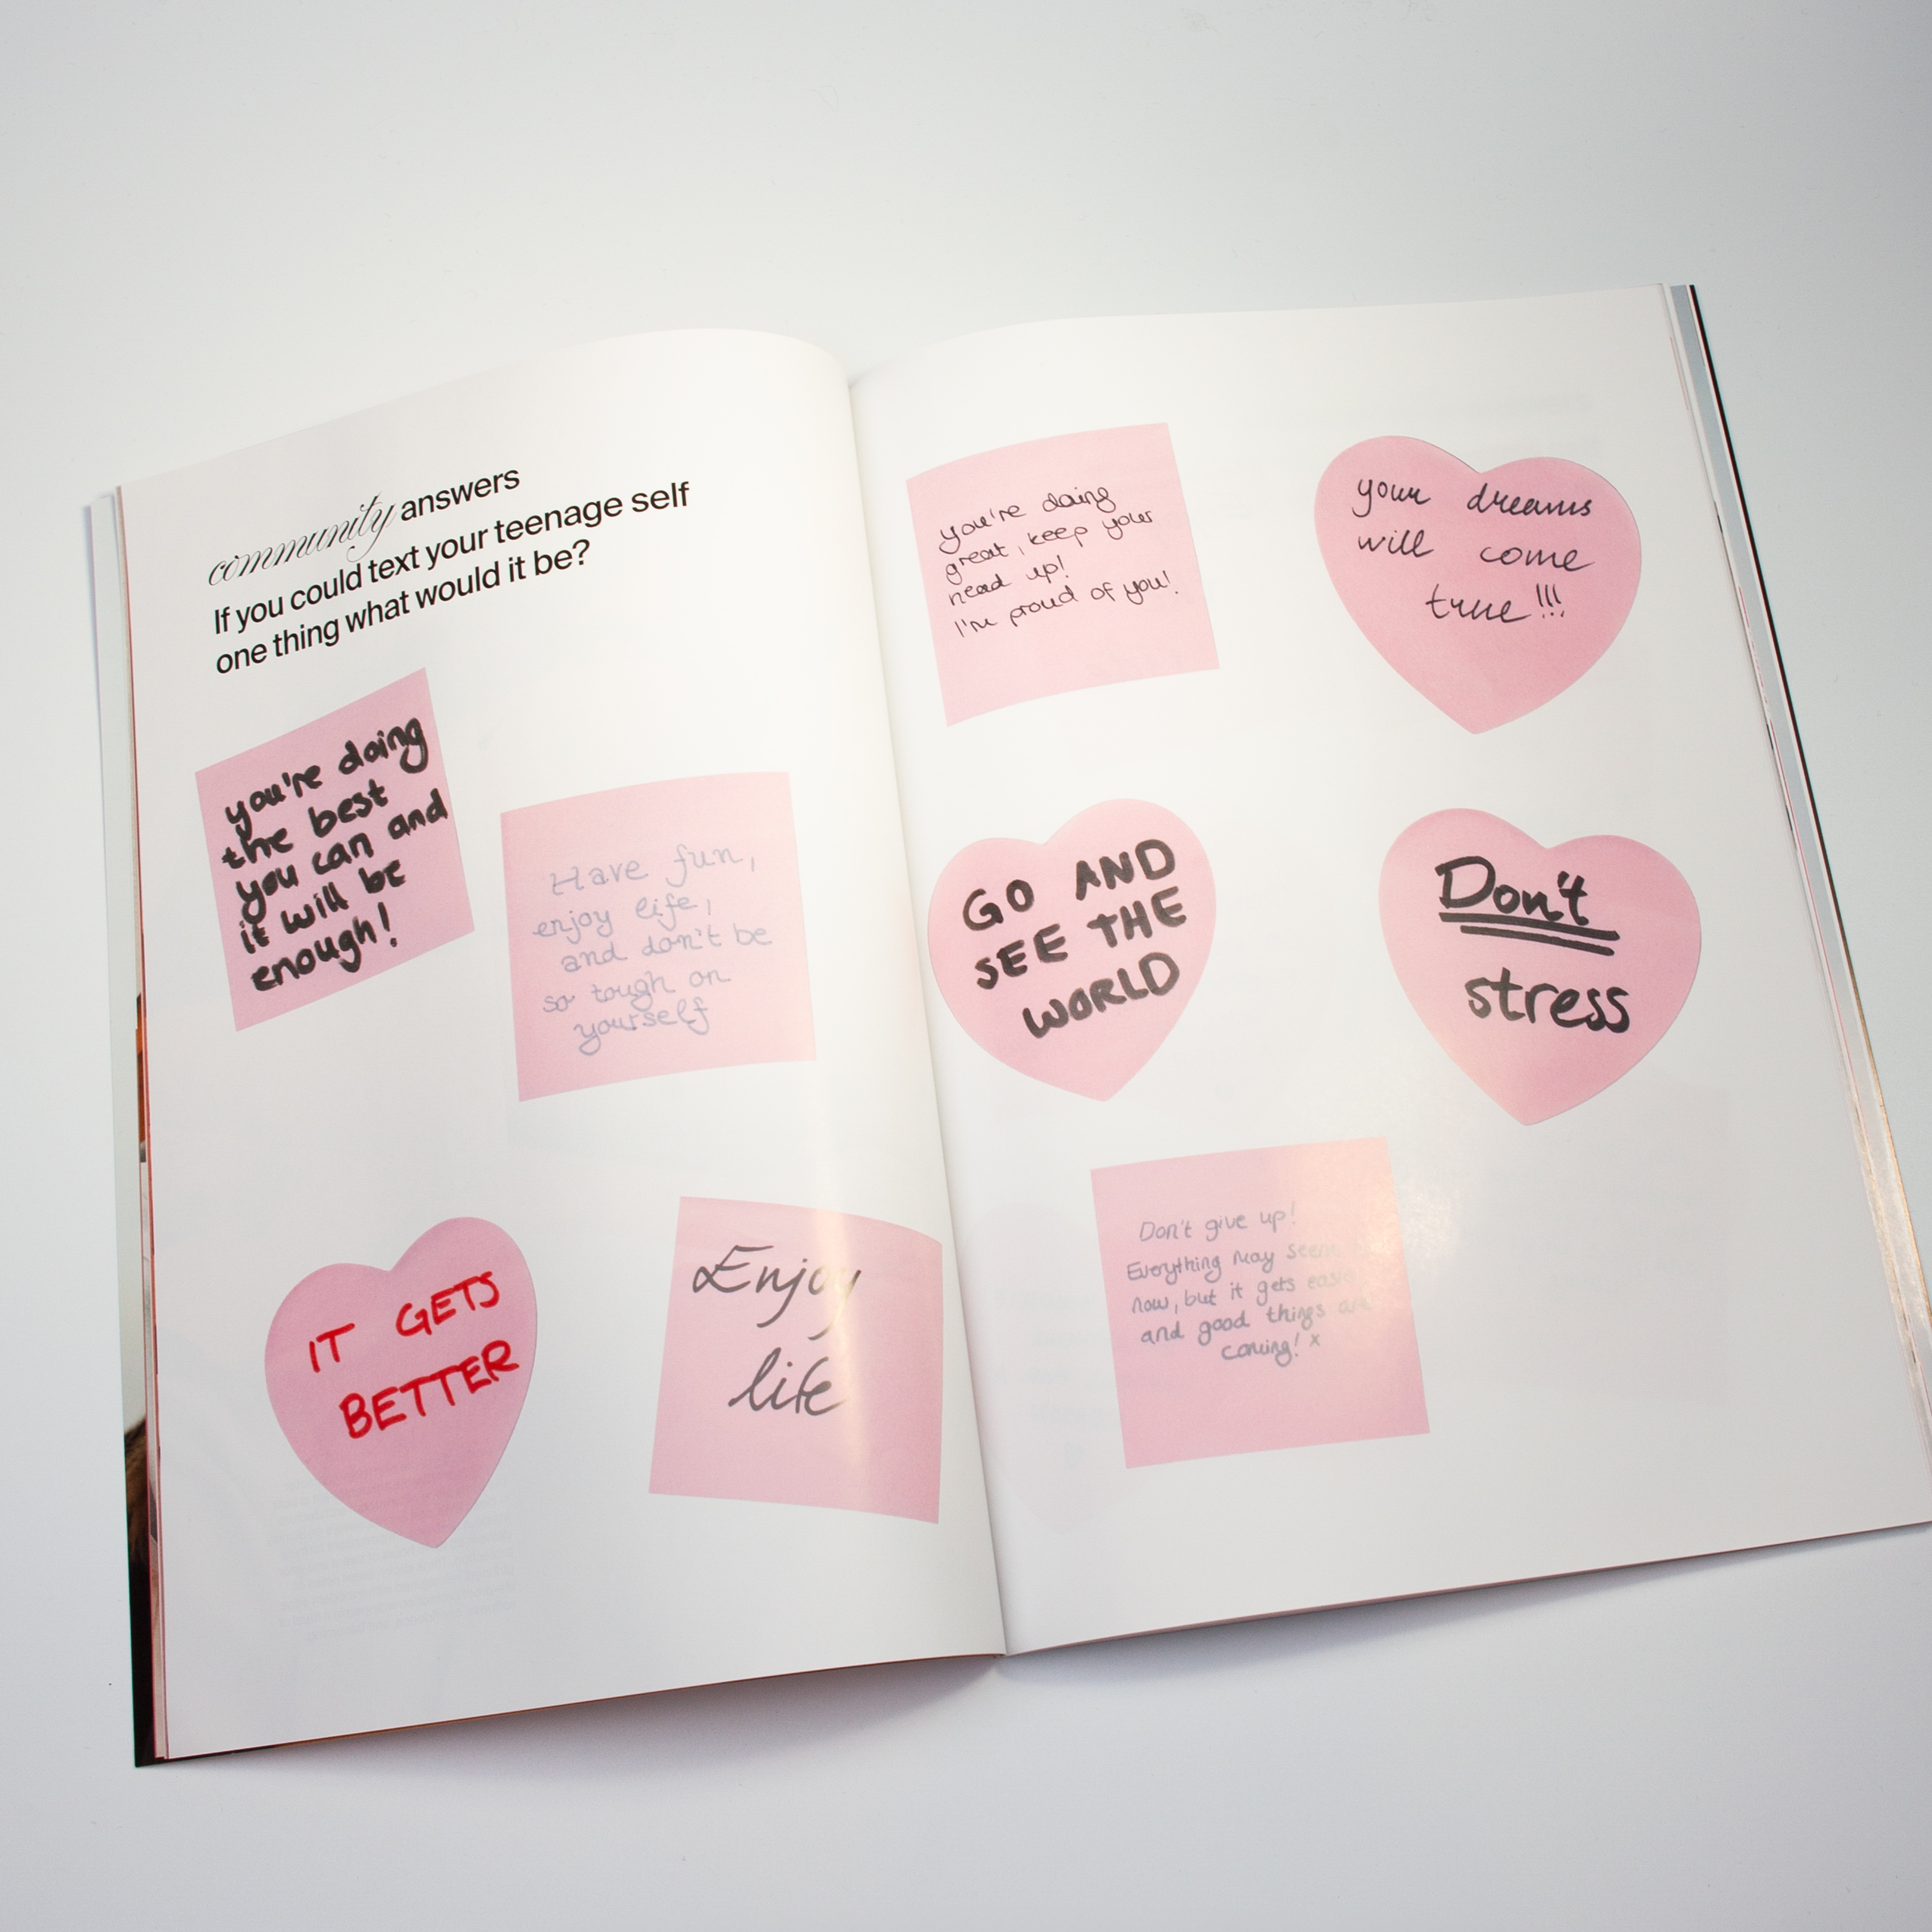 community answers
If you could text your teenage self
one thing what would it be?
you're doing
the best
you can and
it will be
enough!
Have fun,
enjoy life,
and don't be
so tough on
yourself
IT GETS
BETTER
Enjoy
life
you're doing
great, keep your
head up!
I'm proud of you!
your dreams
will come
true!!!
GO AND
SEE THE
WORLD
Don't
stress
Don't give up!
Everything may seem
now, but it gets easier
and good things are
coming! x